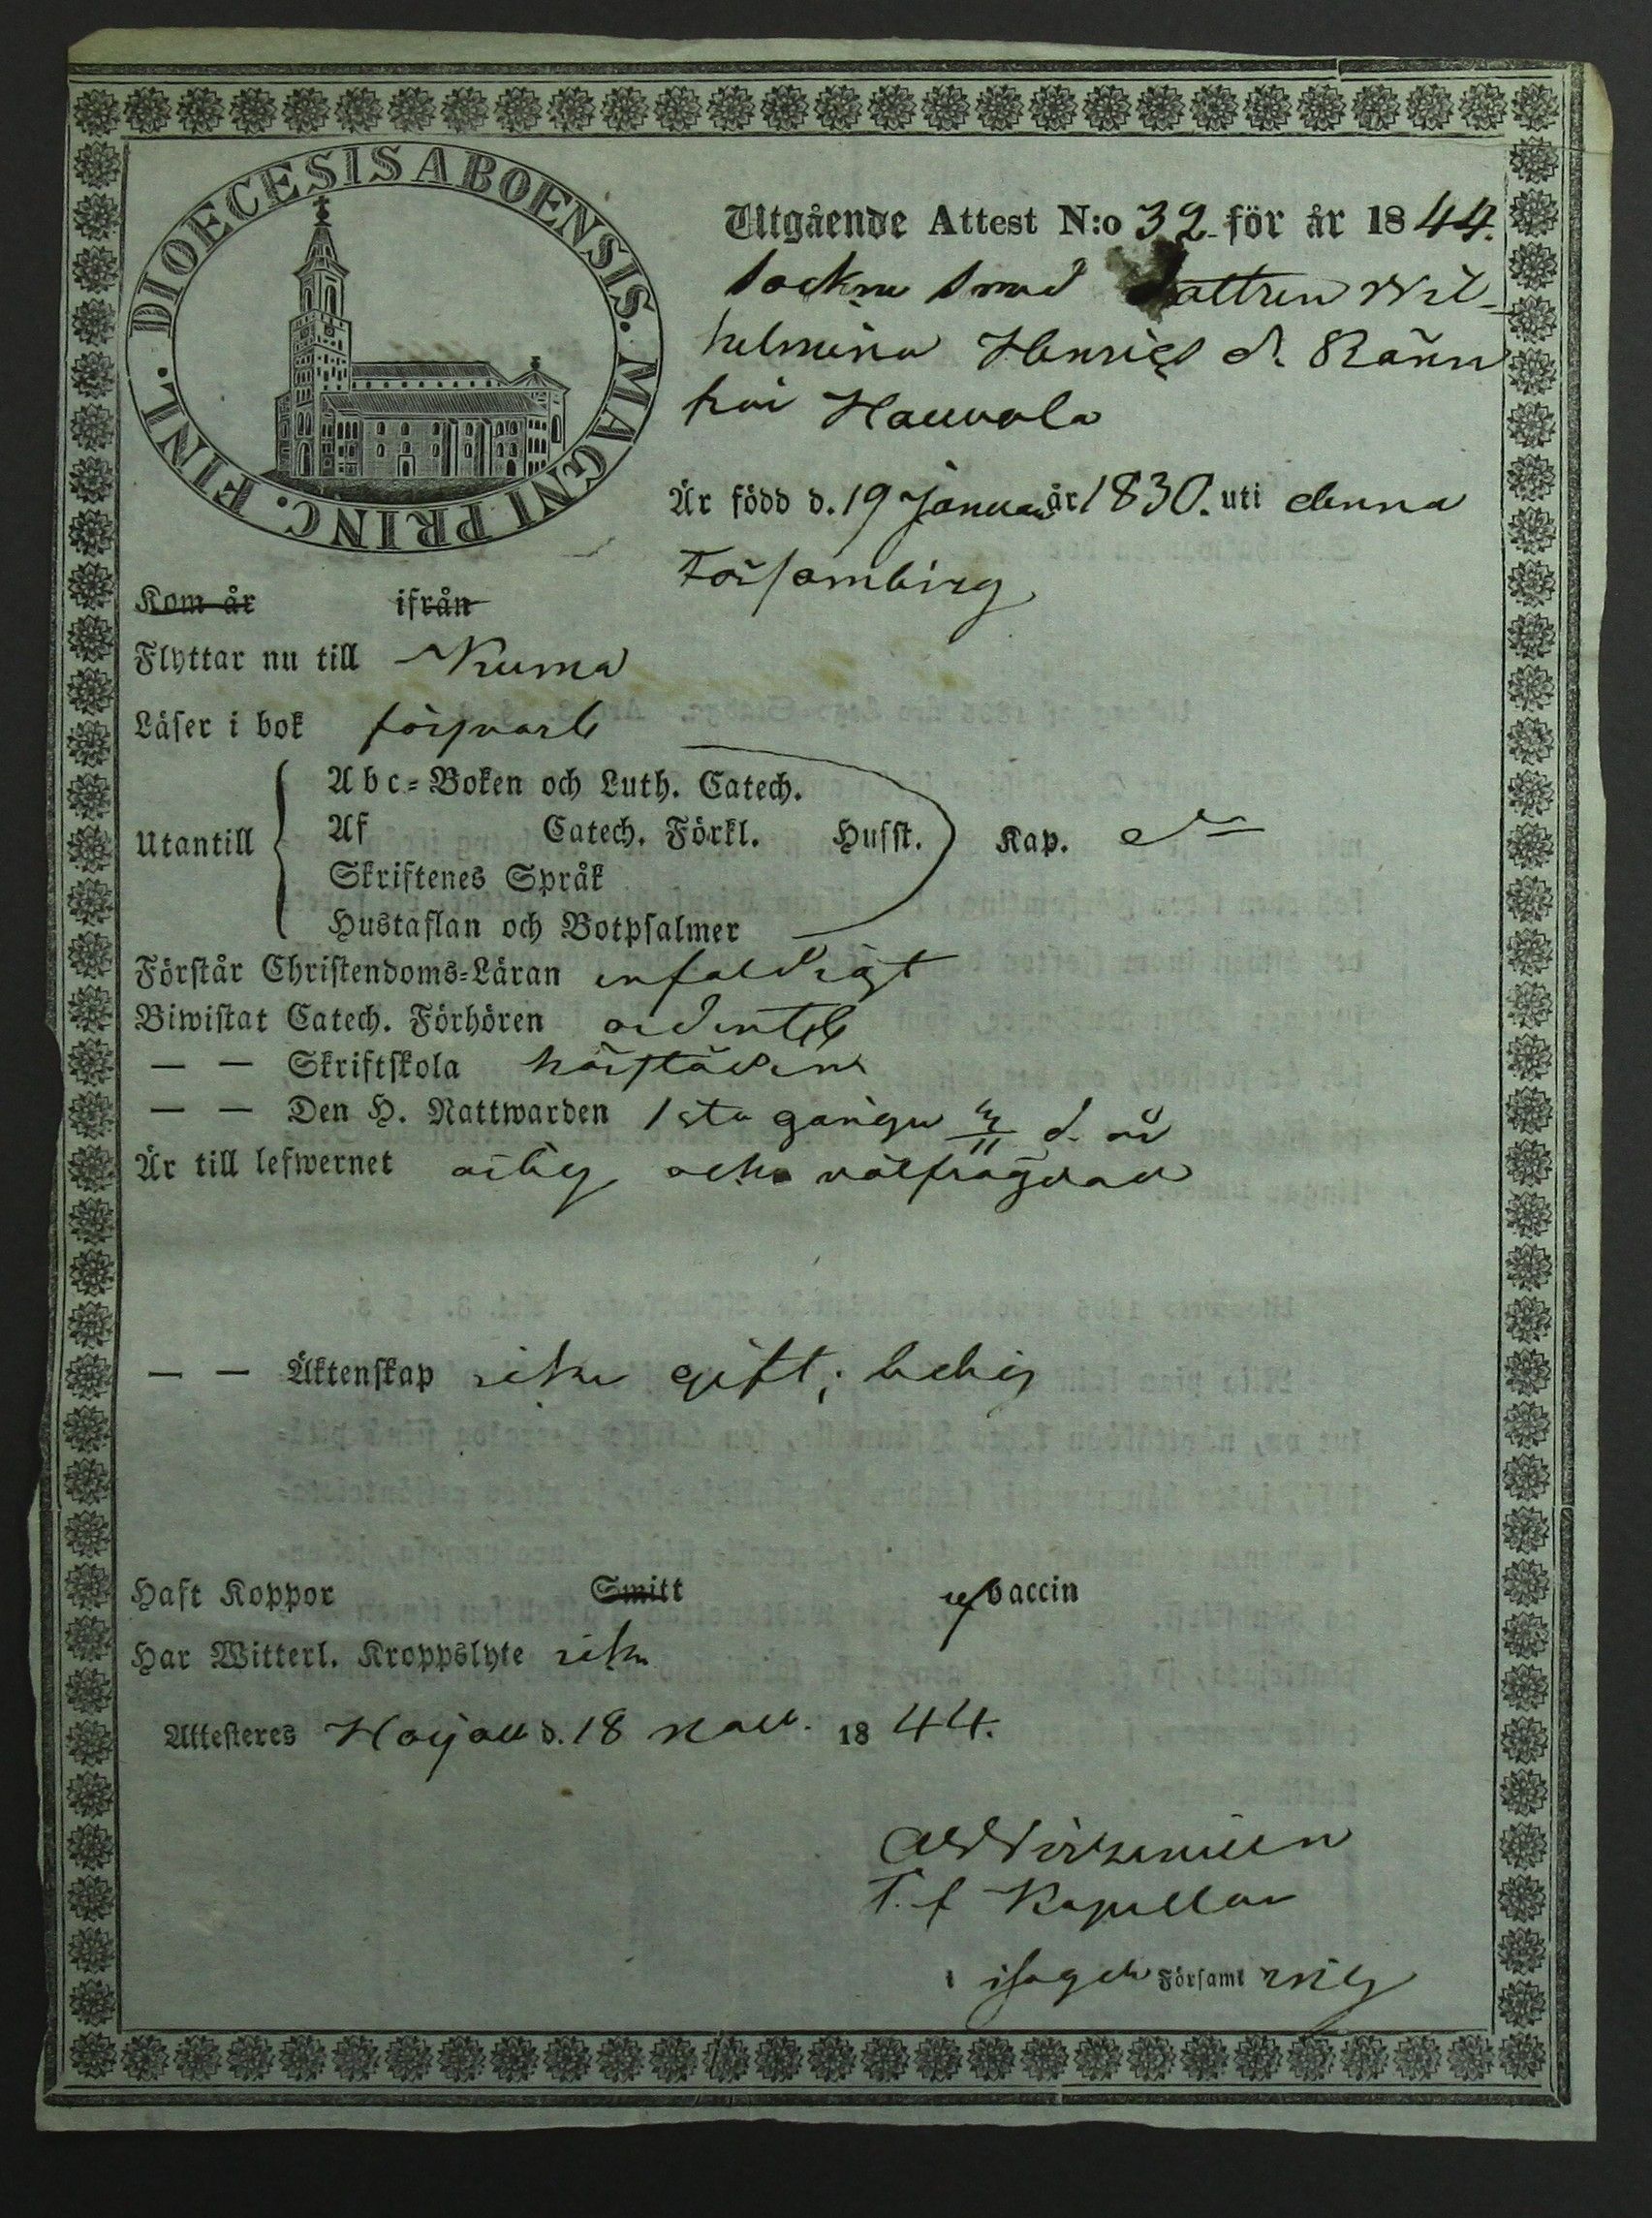 DIOECESIS ABOENSIS. MAGNI PRINC. FINL.
Utgående Attest N:o 32 för år 1844.
Sockne Smed Dottren Wil-
helmina Henrics d. Ränn
från Hauvola
Är född d. 19 Januar år 1830. uti denna
Församling
Kom år ifrån
Flyttar nu till Kumo
Läser i bok försvarl
Utantill
Abc-Boken och Luth. Catech.
Af Catech. Förkl. Husst. Kap. do
Skriftenes Språk
Hustaflan och Botpsalmer
Förstår Christendoms-Läran enfaldigt
Biwistat Catech. Förhören ordentl
— — Skriftskola härstädes
— — Den H. Nattwarden 1sta gången d. år
Är till lefwernet ärlig och välfrägdad
— — Äktenskap icke gift; ledig
Haft Koppor Smitt vaccin
Har Witterl. Kroppslyte icke
Attesteres d. 18 Nov. 1844.
T. f Kapellan
i Församl